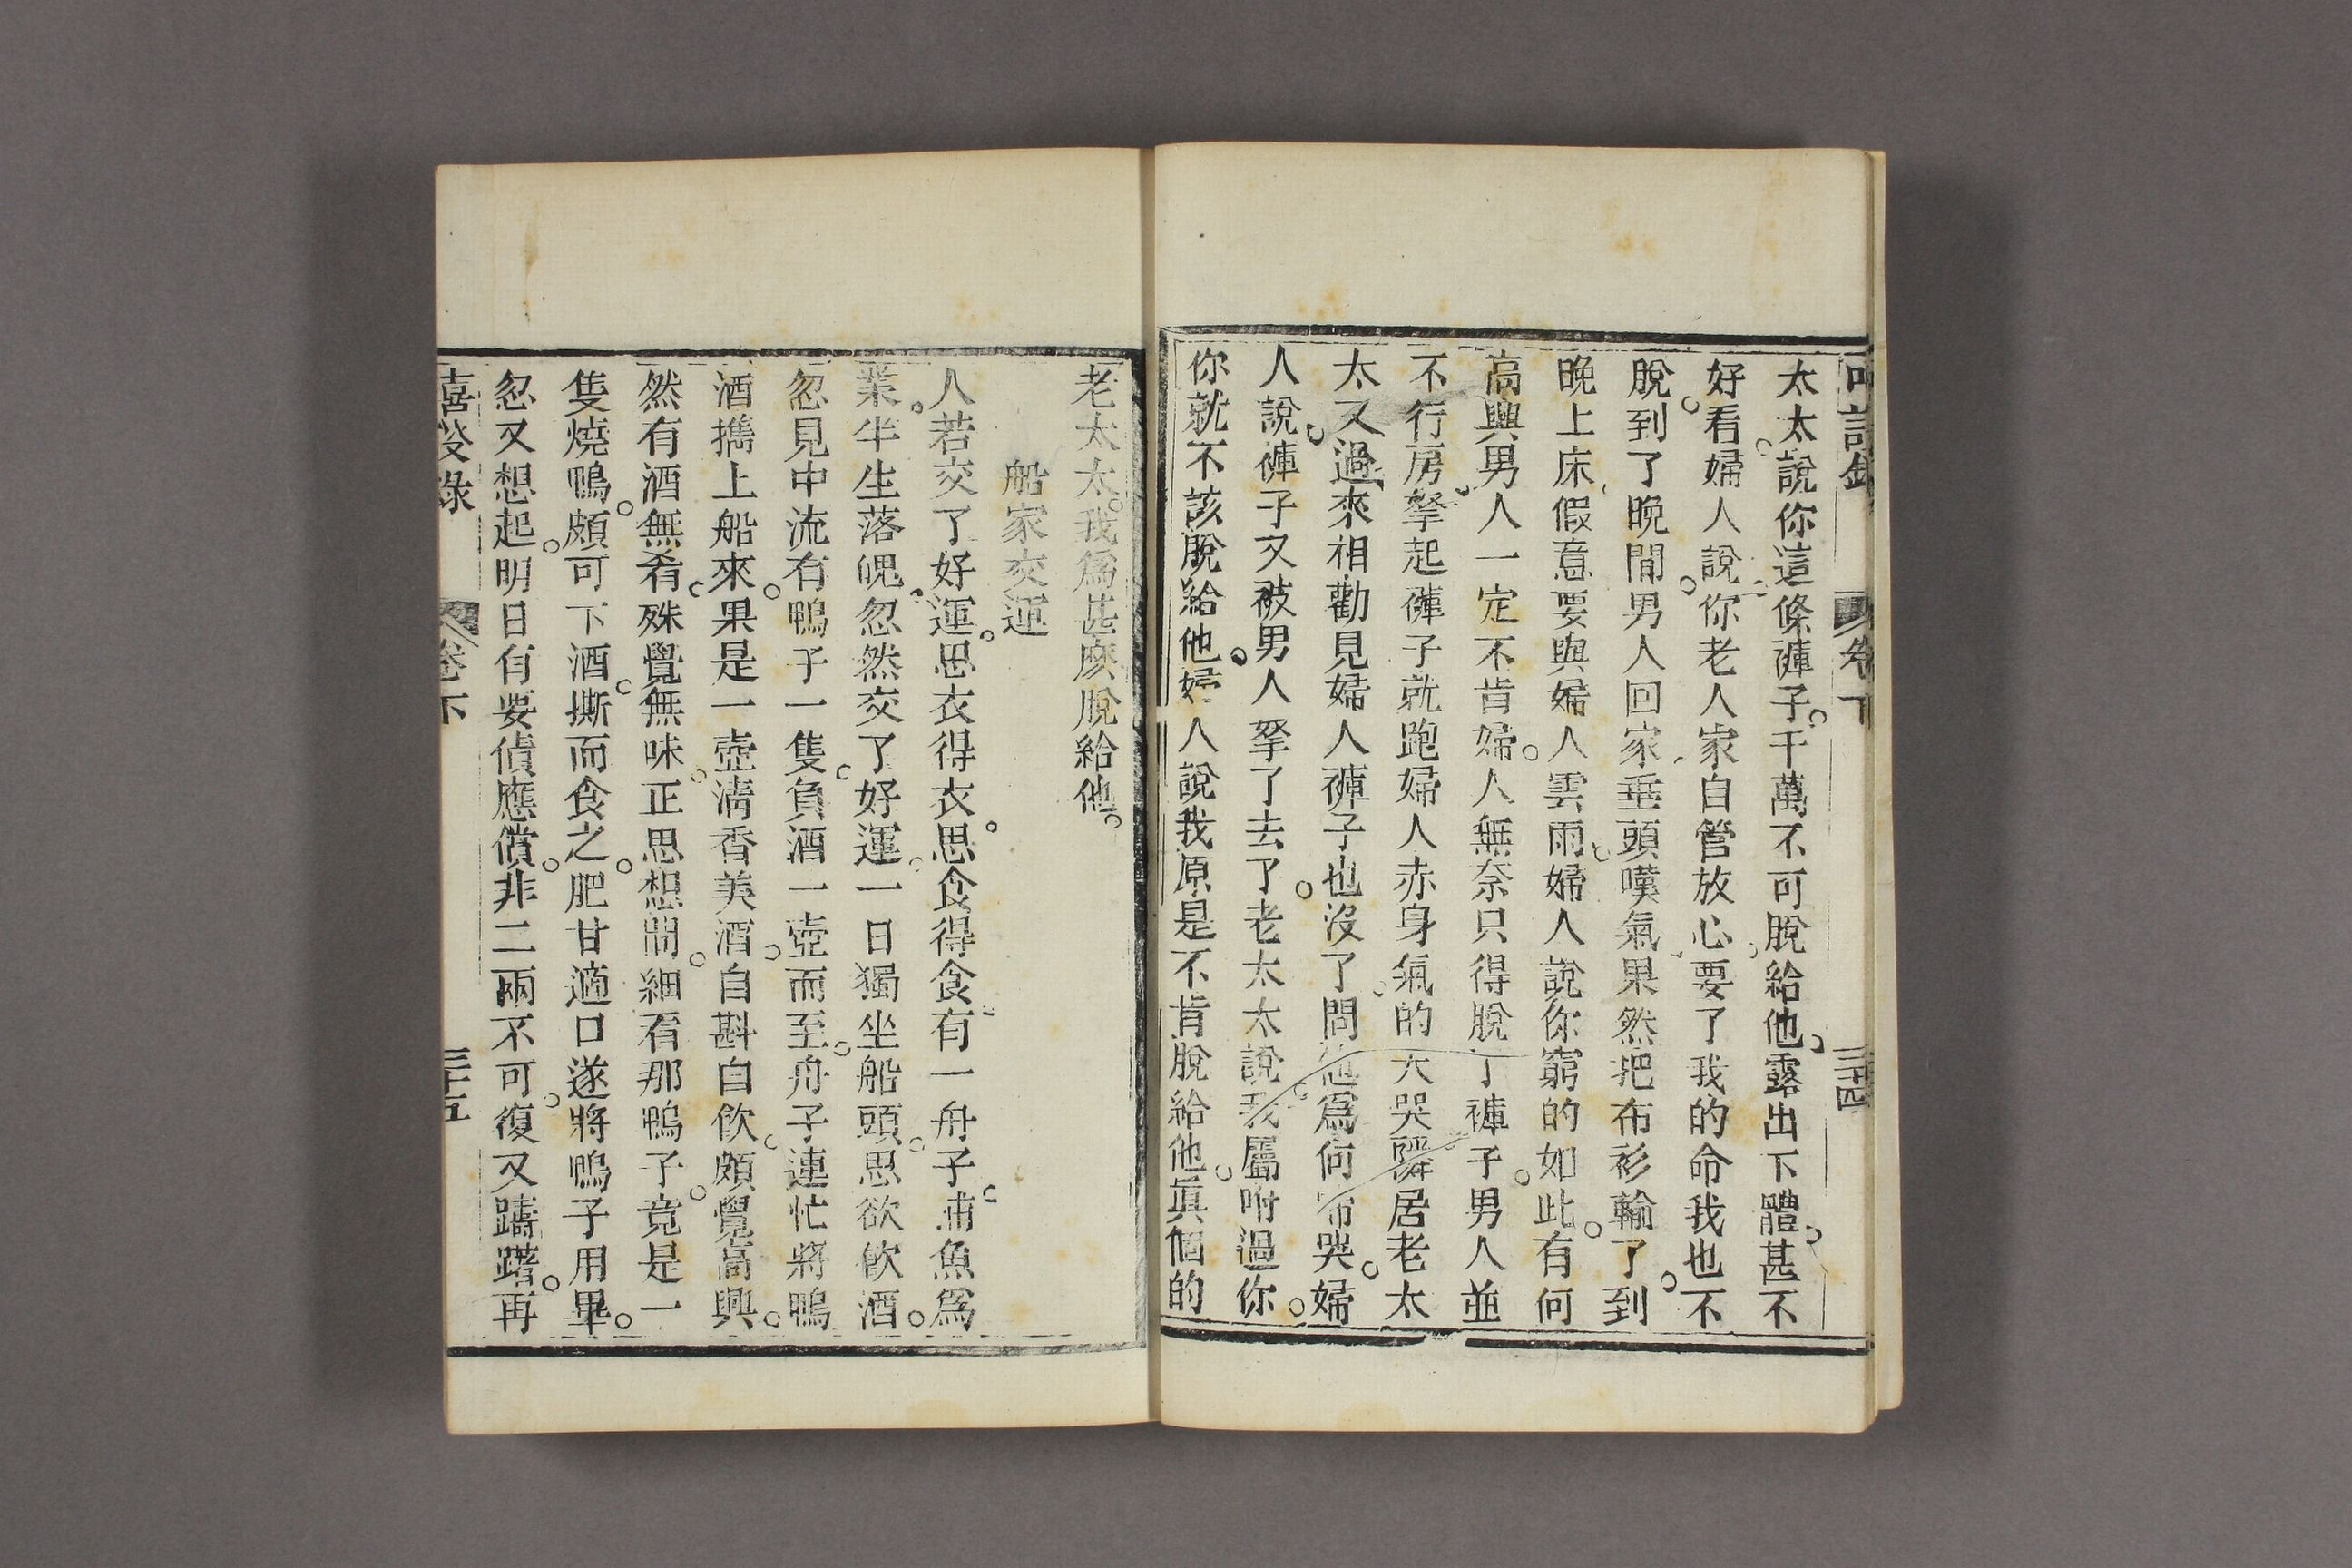 太太說你這條褲子。千萬不可脫給他。露出下體。甚不
好看。婦人說。你老人家自管放心。要了我的命我也不
脫。到了晚間。男人回家。垂頭嘆氣。果然把布衫輸了。到
晚上床。假意要與婦人雲雨。婦人說你窮的如此。有何
高興。男人一定不肯。婦人無奈只得脫了褲子。男人並
不行房。拏起褲子就跑。婦人赤身氣的大哭。隣居老太
太又過來相勸。見婦人褲子也沒了。問他為何而哭。婦
人說。褲子又被男人拏了去了。老太太說。我屬咐過你。
你就不該脫給他。婦人說我原是不肯脫給他。眞個的
三十四
老太太。我為甚麽脫給他。
船家交運
人若交了好運。思衣得衣。思食得食。有一舟子。捕魚爲
業。半生落魄。忽然交了好運。一日獨坐船頭。思欲飮酒。
忽見中流有鴨子一隻。負酒一壺而至。舟子連忙將鴨
酒擕上船來。果是一壺淸香美酒。自斟自飮。頗覺高興。
然有酒無肴。殊覺無味。正思想間。細看那鴨子。竟是一
隻燒鴨。頗可下酒。撕而食之。肥甘適口。遂將鴨子用畢。
忽又想起。明日有要債應償。非二兩不可。復又躊躇。再
嘻談錄
卷下
三十五